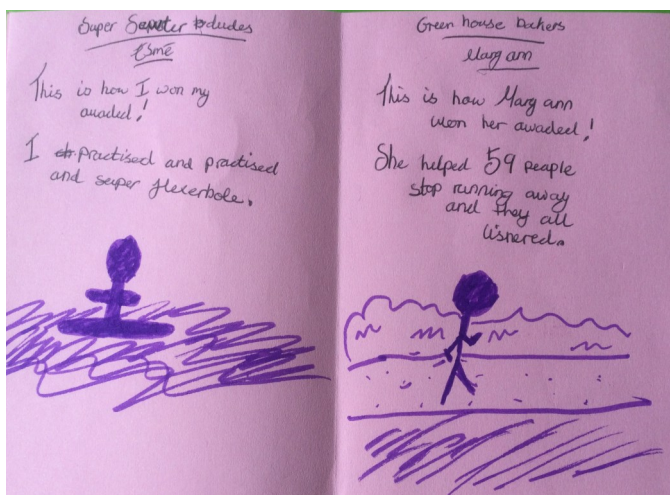 Super Scouter dudes
Esmé
This is how I won my
awaded!
I practised and practised
and super flexerbole.
Green house backers
Marg ann
This is how Marg ann
won her awaded!
She helped 59 peaple
stop running away
and they all
lisnered.